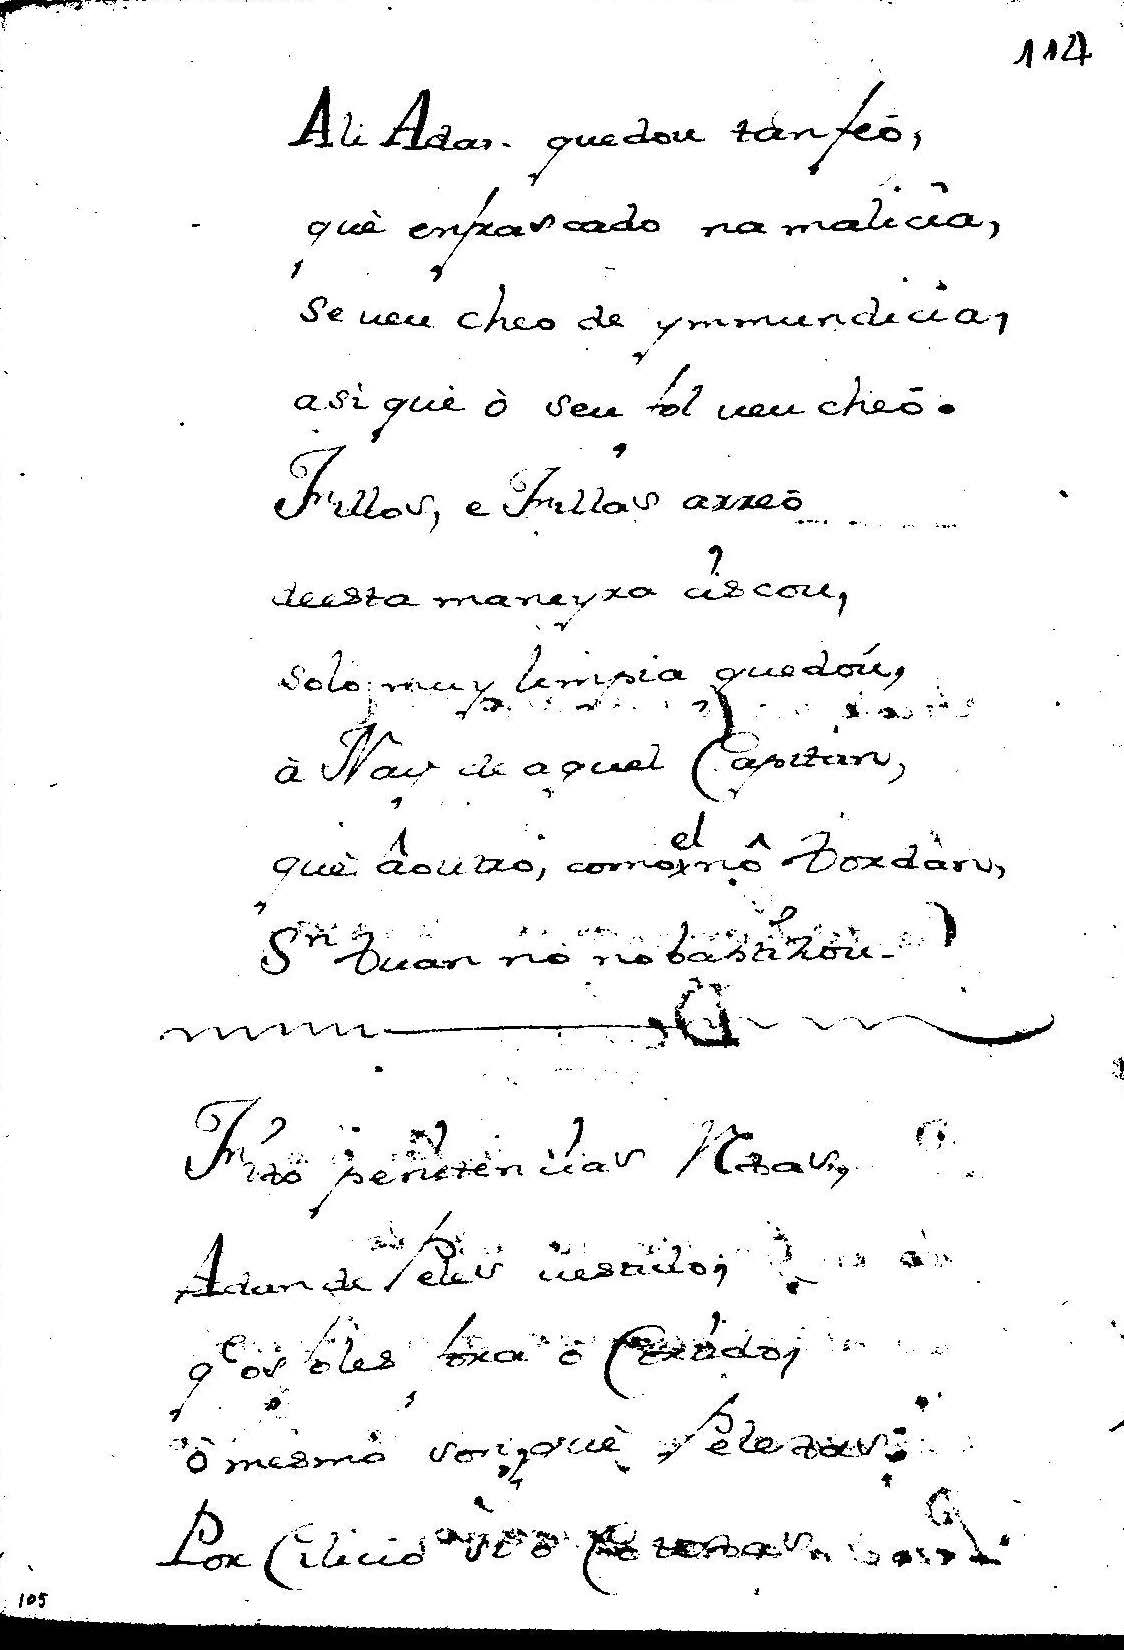 114
Ali Adan. quedou tan feō,
què enfrascado na malicia,
se ueu cheo de ymmundicia,
asì què ò seu fol ueu cheō.
Fillos, e Fillas arreō
deesta maneyra ciscou,
solo muy limpia quedoú,
à Nay de aquel Capitàn,
què âoutro, como el nô Jordàn,
Sn Juan no no bastizou.
Fitō penitencias Netas,
Adan de Peles uestido,
qe os foles fora o Corúdo,
ò mesmo son, què Peletas:
Por Cilicio
105